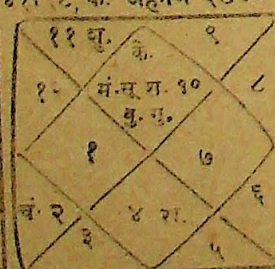 ११ शु.
के.
९
१२
मं. सू. रा. १०
बु. गु.
८
१
७
चं. २
४ रा.
६
३
५